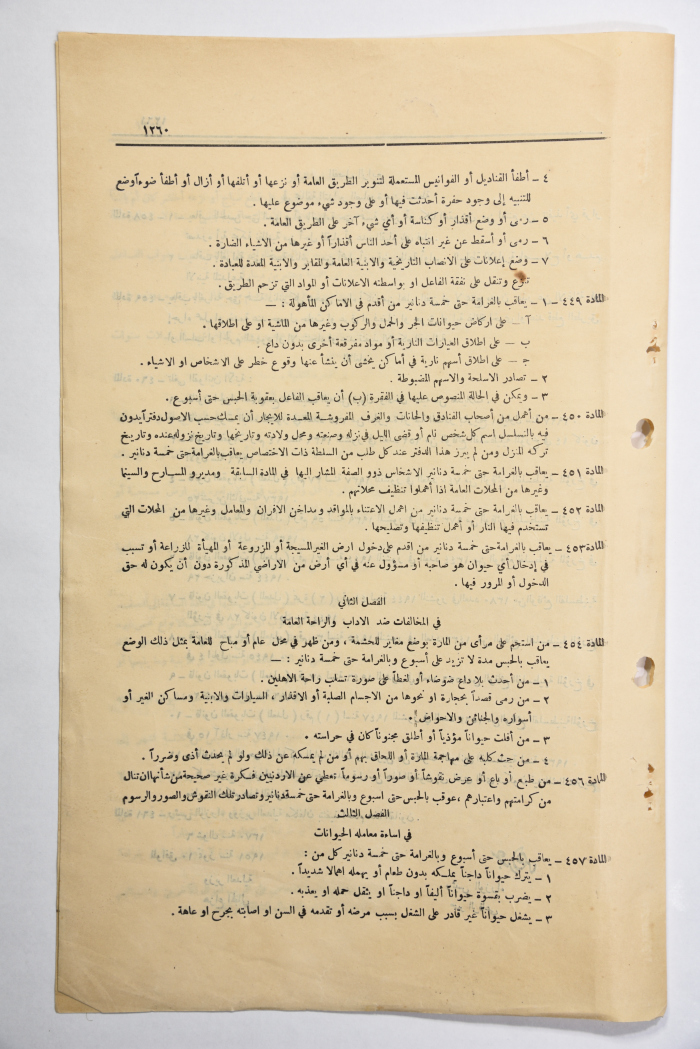 ١٢٦٠
٤ – أطفأ القناديل أو الفوانيس المستعملة لتنوير الطريق العامة أو نزعها أو أتلفها أو أزال أو أطفأ ضوءاً وضع
للتنبيه إلى وجود حفرة أحدثت فيها أو على وجود شيء موضوع عليها .
٥ – رمى أو وضع أقذار أو كناسة أو أي شيء آخر على الطريق العامة .
٦ – رمى أو أسقط عن غير انتباه على أحد الناس أقذاراً أو غيرها من الاشياء الضارة .
٧ – وضع إعلانات على الانصاب التاريخية والابنية العامة والمقابر والابنية المعدة للعبادة .
تنزع وتنقل على نفقة الفاعل او بواسطته الاعلانات أو المواد التي تزحم الطريق .
المادة ٤٤٩ – ١ – يعاقب بالغرامة حتى خمسة دنانير من أقدم في الاماكن المأهولة : —
آ – على اركاض حيوانات الجر والحمل والركوب وغيرها من الماشية او على اطلاقها .
ب – على اطلاق العيارات النارية أو مواد مفرقعة أخرى بدون داع .
ج – على اطلاق أسهم نارية في أماكن يخشى أن ينشأ عنها وقوع خطر على الاشخاص او الاشياء .
٢ – تصادر الاسلحة والاسهم المضبوطة .
٣ – ويمكن في الحالة المنصوص عليها في الفقرة (ب) أن يعاقب الفاعل بعقوبة الحبس حتى أسبوع .
المادة ٤٥٠ – من أهمل من أصحاب الفنادق والخانات والغرف المفروشة المعدة للايجار أن يمسك حسب الاصول دفتراً يدون
فيه بالتسلسل اسم كل شخص نام أو قضى الليل في نزله وصنعته ومحل ولادته وتاريخها وتاريخ نزوله عنده وتاريخ
تركه المنزل ومن لم يبرز هذا الدفتر عند كل طلب من السلطة ذات الاختصاص يعاقب بالغرامة حتى خمسة دنانير .
المادة ٤٥١ – يعاقب بالغرامة حتى خمسة دنانير الاشخاص ذوو الصفة المشار اليها في المادة السابقة ومديرو المسارح والسينما
وغيرها من المحلات العامة اذا أهملوا تنظيف محلاتهم .
المادة ٤٥٢ – يعاقب بالغرامة حتى خمسة دنانير من اهمل الاعتناء بالمواقد ومداخن الافران والمعامل وغيرها من المحلات التي
تستخدم فيها النار أو أهمل تنظيفها وتصليحها .
المادة ٤٥٣ – يعاقب بالغرامة حتى خمسة دنانير من اقدم على دخول ارض الغير المسيجة أو المزروعة أو المهيأة للزراعة أو تسبب
في إدخال أي حيوان هو صاحبه أو مسؤول عنه في أي أرض من الاراضي المذكورة دون أن يكون له حق
الدخول أو المرور فيها .
الفصل الثاني
في المخالفات ضد الاداب والراحة العامة
المادة ٤٥٤ – من استحم على مرأى من المارة بوضع مغاير للحشمة ، ومن ظهر في محل عام أو مباح للعامة بمثل ذلك الوضع
يعاقب بالحبس مدة لا تزيد على أسبوع وبالغرامة حتى خمسة دنانير : —
١ – من أحدث بلا داع ضوضاء أو لغطاً على صورة تسلب راحة الاهلين .
٢ – من رمى قصداً بحجارة او نحوها من الاجسام الصلبة أو الاقذار ، السيارات والابنية ومساكن الغير أو
أسواره والجنائن والاحواض .
٣ – من أفلت حيواناً مؤذياً أو أطلق مجنوناً كان في حراسته .
٤ – من حث كلبه على مهاجمة المارة أو اللحاق بهم أو من لم يمسكه عن ذلك ولو لم يحدث أذى وضرراً .
المادة ٤٥٦ – من طبع أو باع أو عرض نقوشاً أو صوراً أو رسوماً تعطي عن الاردنيين فكرة غير صحيحة من شأنها ان تنال
من كرامتهم واعتبارهم ، عوقب بالحبس حتى اسبوع وبالغرامة حتى خمسة دنانير وتصادر تلك النقوش والصور والرسوم
الفصل الثالث
في اساءة معامله الحيوانات
المادة ٤٥٧ – يعاقب بالحبس حتى أسبوع وبالغرامة حتى خمسة دنانير كل من :
١ – يترك حيواناً داجناً يملكه بدون طعام أو يهمله اهمالا شديداً .
٢ – يضرب بقسوة حيواناً أليفاً او داجناً او يثقل حمله او يعذبه .
٣ – يشغل حيواناً غير قادر على الشغل بسبب مرضه أو تقدمه في السن او اصابته بجرح او عاهة .